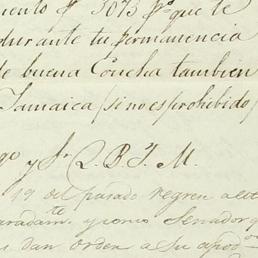 3073 p.º que te
durante tu permanencia
de buena Concha tambien
Jamaica (si no es prohibido)
y S.r Q. B. T. M.
19 del pasado regren
y como Senador
dan orden a su apod.